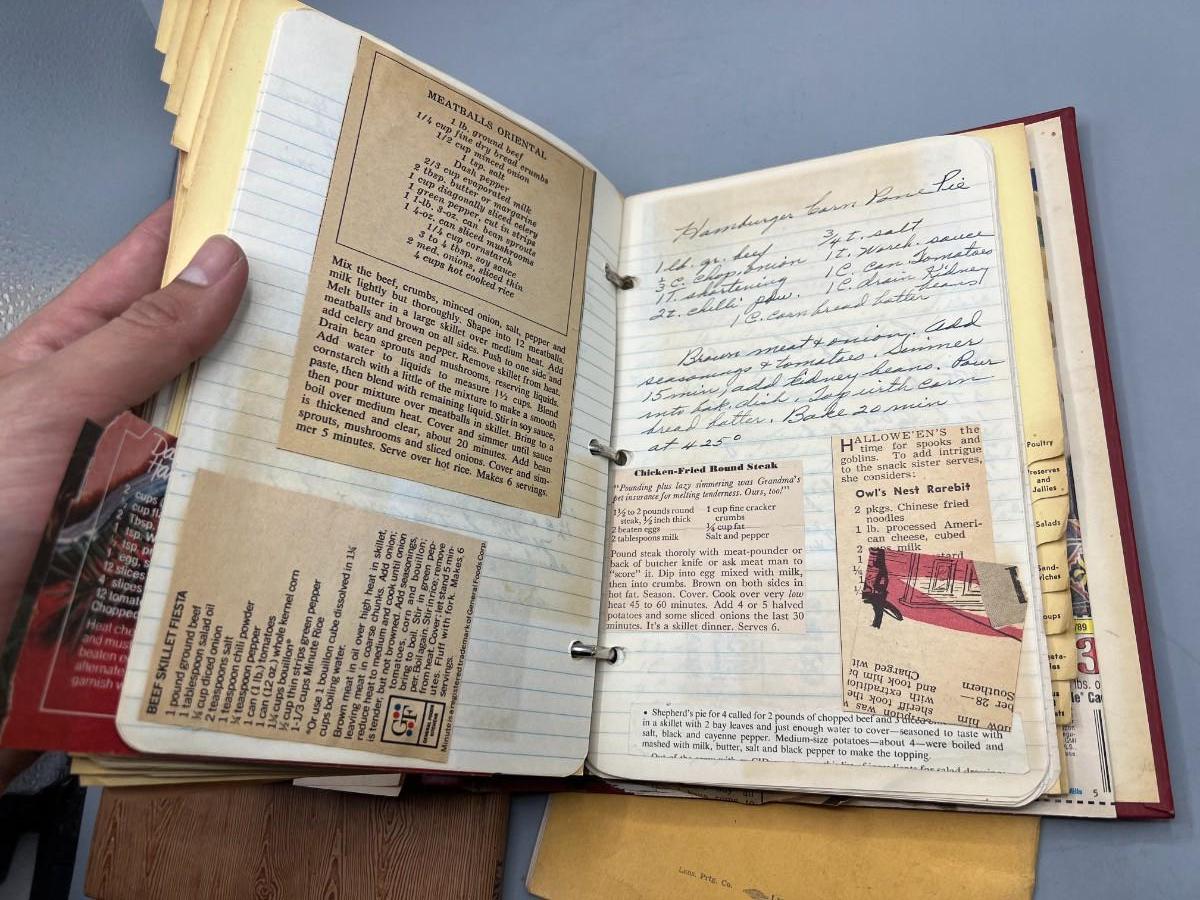 MEATBALLS ORIENTAL
1 lb. ground beef
1/4 cup fine dry bread crumbs
1/2 cup minced onion
1 tsp. salt
Dash pepper
2/3 cup evaporated milk
2 tbsp. butter or margarine
1 cup diagonally sliced celery
1 green pepper, cut in strips
1 1-lb. 3-oz. can bean sprouts
1 4-oz. can sliced mushrooms
1/4 cup cornstarch
3 to 4 tbsp. soy sauce
2 med. onions, sliced thin
4 cups hot cooked rice
Mix the beef, crumbs, minced onion, salt, pepper and
milk lightly but thoroughly. Shape into 12 meatballs.
Melt butter in a large skillet over medium heat. Add
meatballs and brown on all sides. Push to one side and
add celery and green pepper. Remove skillet from heat.
Drain bean sprouts and mushrooms, reserving liquids.
Add water to liquids to measure 1½ cups. Blend
cornstarch with a little of the mixture to make a smooth
paste, then blend with remaining liquid. Stir in soy sauce,
then pour mixture over meatballs in skillet. Bring to a
boil over medium heat. Cover and simmer until sauce
is thickened and clear, about 20 minutes. Add bean
sprouts, mushrooms and sliced onions. Cover and sim-
mer 5 minutes. Serve over hot rice. Makes 6 servings.
BEEF SKILLET FIESTA
1 pound ground beef
1 tablespoon salad oil
¼ cup diced onion
2 teaspoons salt
1 teaspoon chili powder
¼ teaspoon pepper
1 can (1 lb.) tomatoes
1 can (12 oz.) whole kernel corn
1¼ cups bouillon*
½ cup thin strips green pepper
1-1/3 cups Minute Rice
*Or use 1 bouillon cube dissolved in 1¼
cups boiling water.
Brown meat in oil over high heat in skillet,
leaving meat in coarse chunks. Add onion;
reduce heat to medium and cook until onion
is tender, but not browned. Add seasonings,
tomatoes, corn and bouillon;
bring to boil. Stir in green pep-
per. Boil again. Stir in rice; remove
from heat. Cover; let stand 5 min-
utes. Fluff with fork. Makes 6
servings.
Minute is a registered trademark of General Foods Corp.
GF
2 cups
2 cups fl
2 Tbsp.
1 egg, s
12 slices
4 slices
12 tomat
Chopped
Heat che
and must
beaten e
alternate
garnish w
Hamburger Corn Pone Pie
1 lb. gr. beef
¾ t. salt
⅓ C. chop. onion
1 t. worch. sauce
1 T. shortening
1 C. can tomatoes
2 t. chilli pow.
1 C. drain Kidney beans
1 C. Corn bread batter
Brown meat & onion. Add
seasonings & tomatoes. Simmer
15 min, add kidney beans. Pour
into bak. dish. Top with corn
bread batter. Bake 20 min
at 425°
Chicken-Fried Round Steak
"Pounding plus lazy simmering was Grandma's
pet insurance for melting tenderness. Ours, too!"
1½ to 2 pounds round
steak, ½ inch thick
2 beaten eggs
2 tablespoons milk
1 cup fine cracker
crumbs
¼ cup fat
Salt and pepper
Pound steak thoroly with meat-pounder or
back of butcher knife or ask meat man to
"score" it. Dip into egg mixed with milk,
then into crumbs. Brown on both sides in
hot fat. Season. Cover. Cook over very low
heat 45 to 60 minutes. Add 4 or 5 halved
potatoes and some sliced onions the last 30
minutes. It's a skillet dinner. Serves 6.
HALLOWE'EN'S the
time for spooks and
goblins. To add intrigue
to the snack sister serves,
she considers:
Owl's Nest Rarebit
2 pkgs. Chinese fried
noodles
1 lb. processed Ameri-
can cheese, cubed
milk
Charged wit
him and took
with extradition
the sheriff was
Southern
ber 28—
now him
• Shepherd's pie for 4 called for 2 pounds of chopped beef and 3
in a skillet with 2 bay leaves and just enough water to cover—seasoned to taste with
salt, black and cayenne pepper. Medium-size potatoes—about 4—were boiled and
mashed with milk, butter, salt and black pepper to make the topping.
Poultry
Preserves
and
Jellies
Salads
Sand-
wiches
Soups
Vegeta-
789
3
5
Lans. Prtg. Co.